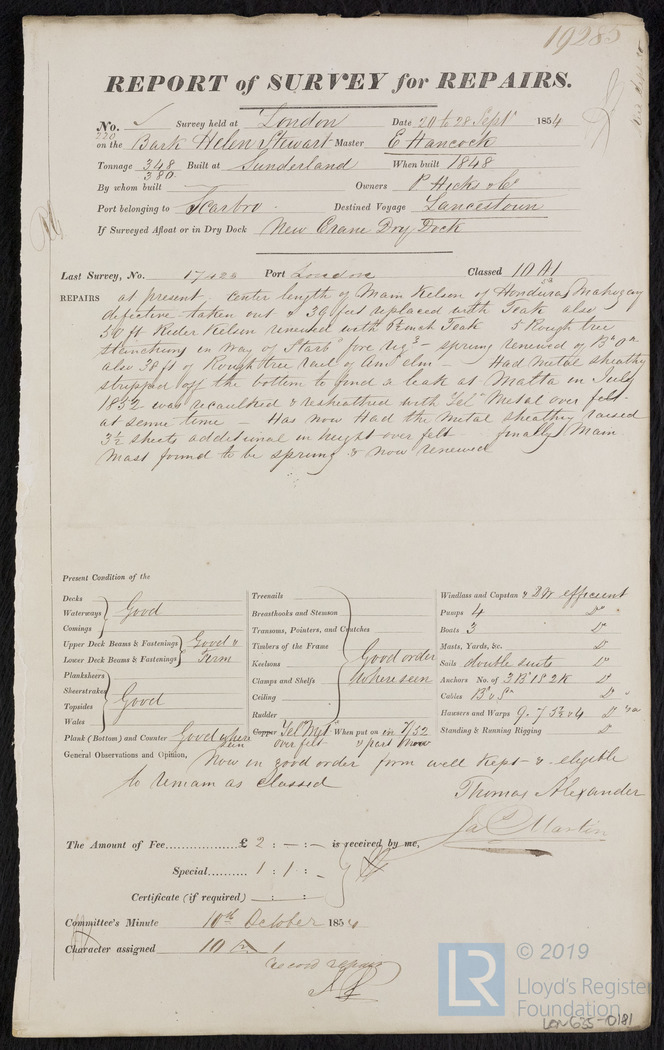 19285
REPORT of SURVEY for REPAIRS.
No. Survey held at London Date 20 to 28 Septr 1854
220
on the Bark Helen Stewart Master E Hancock
Tonnage 348 Built at Sunderland When built 1848
380
By whom built Owners P. Hicks & Co
Port belonging to Scarbro Destined Voyage Lancestown
If Surveyed Afloat or in Dry Dock New Crane Dry Dock
Last Survey, No. 17420 Port London Classed 10 A1
REPAIRS at present, center length of Main Kelson of Honduras Mahogany
defective taken out & 30 feet replaced with Teak also
50 ft Rider Kelson renewed with inch Teak 5 Rough tree
Stanchions in way of Starbd fore rigg - sprung renewed of
also 38 ft of Rough tree rail of Amn elm - Had metal sheathg
stripped off the bottom to find a leak at Malta in July
1852 was recaulked & resheathed with Yel Metal over felt
at same time - Has now Had the Metal sheathg raised
3½ sheets additional in height over felt finally Main
Mast found to be sprung & now renewed
Present Condition of the
Decks
Waterways Good
Comings
Upper Deck Beams & Fastenings Good &
Lower Deck Beams & Fastenings Firm
Planksheers
Sheerstrakes
Topsides Good
Wales
Plank (Bottom) and Counter Good where
seen
Treenails
Breasthooks and Stemson
Transoms, Pointers, and Crutches
Timbers of the Frame Good order
Keelsons
Clamps and Shelfs Where seen
Ceiling
Rudder
Copper Yel Metl When put on in 7/52
over felt & part now
Windlass and Capstan & efficient
Pumps 4 Do
Boats 3 Do
Masts, Yards, &c. Do
Sails double suits Do
Anchors No. of 3 B 1 S 2 K Do
Cables Do
Hawsers and Warps 9. 7 5½ & 4 Do
Standing & Running Rigging Do
General Observations and Opinion, Now in good order form well Kept & eligible
to remain as Classed
Thomas Alexander
Jas Martin
The Amount of Fee £ 2 : - : - is received by me,
Special 1 : 1 : -
Certificate (if required)
Committee's Minute 10th October 1854
Character assigned 10 A 1
record repairs
© 2019
LR
Lloyd's Register
Foundation
LON635-0181